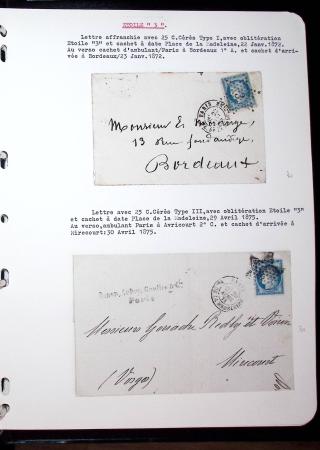 ETOILE " 3 ".
Lettre affranchie avec 25 C.Cérès Type I,avec oblitération
Etoile "3" et cachet à date Place de la Madeleine,22 Janv.1872.
Au verso cachet d'ambulant/Paris à Bordeaux 1° A, et cachet d'arri-
vée à Bordeaux/23 Janv.1872.
PARIS
Monsieur E.
13 Rue
Bordeaux
Lettre avec 25 C.Cérès Type III,avec oblitération Etoile "3"
et cachet à date Place de la Madeleine,29 Avril 1875.
Au verso,ambulant Paris à Avricourt 2° C. et cachet d'arrivée à
Mirecourt:30 Avril 1875.
Paris
Messieurs Gouache, et
Mirecourt
(Vosges)